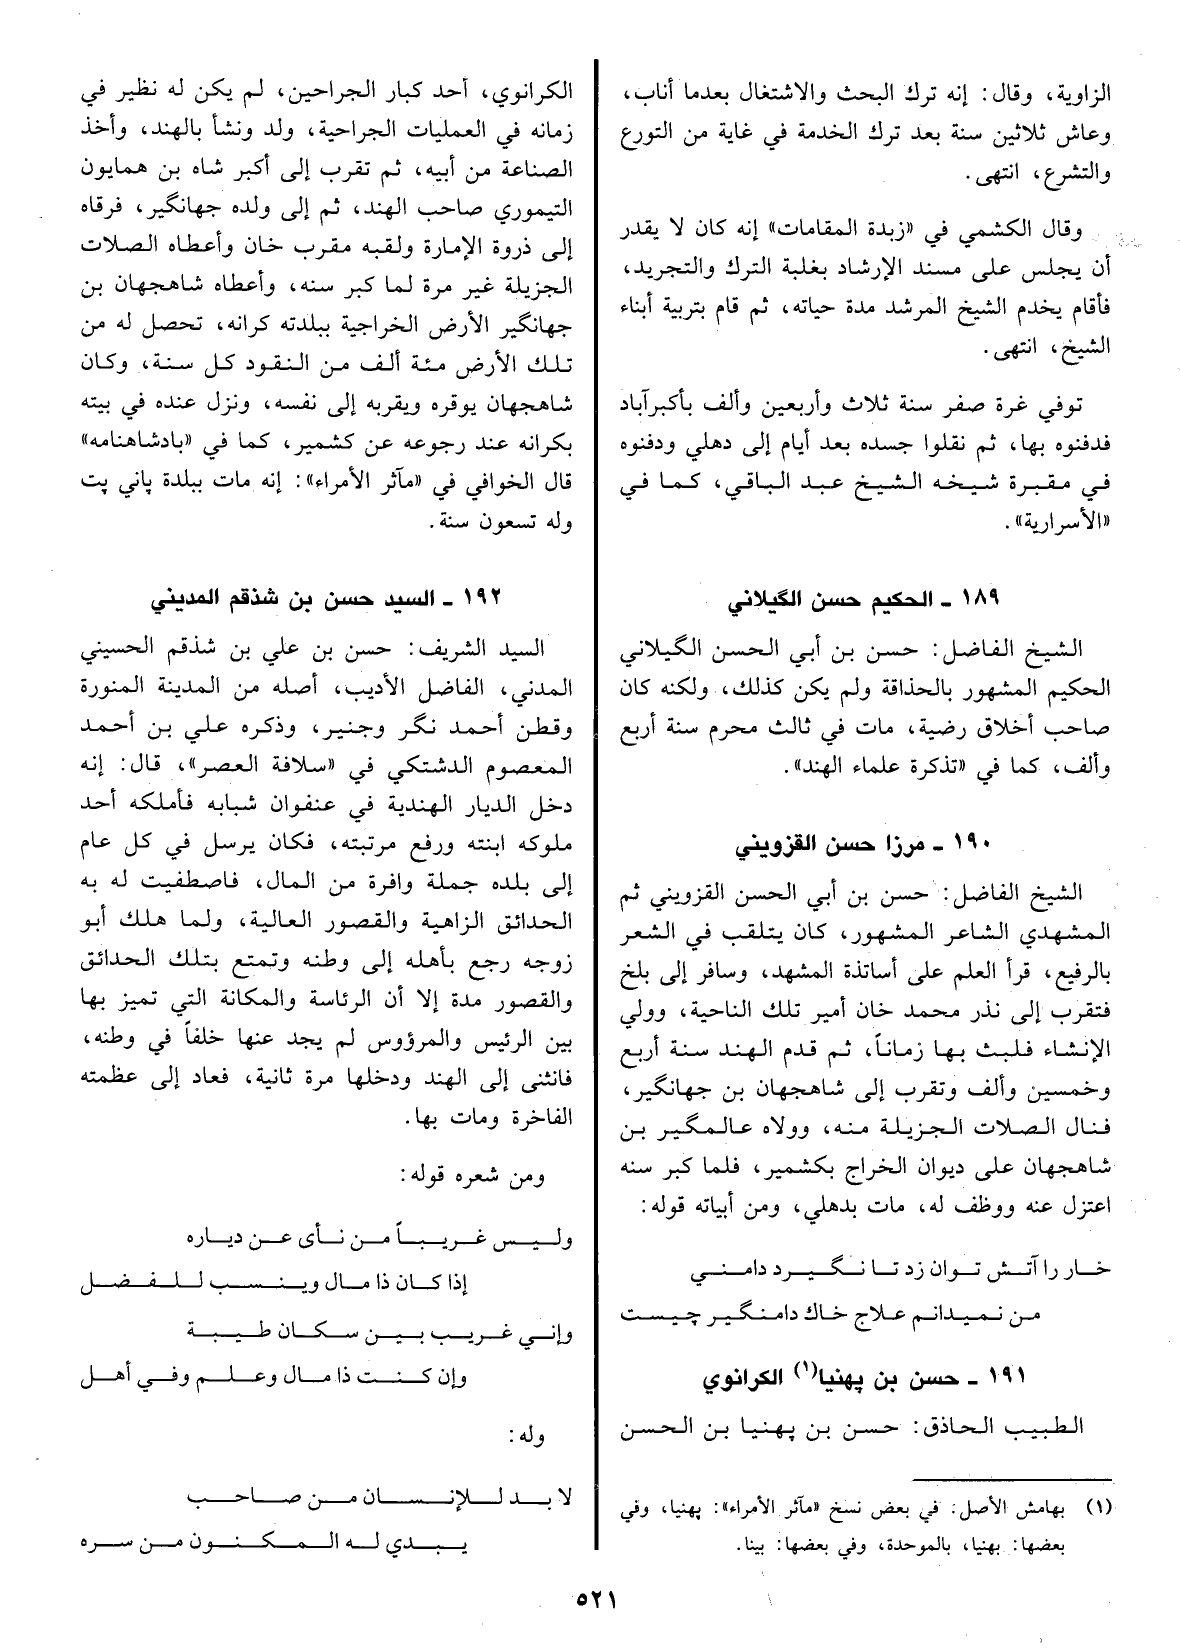 الزاوية، وقال: إنه ترك البحث والاشتغال بعدما أناب،
وعاش ثلاثين سنة بعد ترك الخدمة في غاية من التورع
والتشرع، انتهى.
وقال الكشمي في «زبدة المقامات» إنه كان لا يقدر
أن يجلس على مسند الإرشاد بغلبة الترك والتجريد،
فأقام يخدم الشيخ المرشد مدة حياته، ثم قام بتربية أبناء
الشيخ، انتهى.
توفي غرة صفر سنة ثلاث وأربعين وألف بأكبرآباد
فدفنوه بها، ثم نقلوا جسده بعد أيام إلى دهلي ودفنوه
في مقبرة شيخه الشيخ عبد الباقي، كما في
«الأسرارية».
١٨٩ ـ الحكيم حسن الگيلاني
الشيخ الفاضل: حسن بن أبي الحسن الگيلاني
الحكيم المشهور بالحذاقة ولم يكن كذلك، ولكنه كان
صاحب أخلاق رضية، مات في ثالث محرم سنة أربع
وألف، كما في «تذكرة علماء الهند».
١٩٠ ـ مرزا حسن القزويني
الشيخ الفاضل: حسن بن أبي الحسن القزويني ثم
المشهدي الشاعر المشهور، كان يتلقب في الشعر
بالرفيع، قرأ العلم على أساتذة المشهد، وسافر إلى بلخ
فتقرب إلى نذر محمد خان أمير تلك الناحية، وولي
الإنشاء فلبث بها زماناً، ثم قدم الهند سنة أربع
وخمسين وألف وتقرب إلى شاهجهان بن جهانگير،
فنال الصلات الجزيلة منه، وولاه عالمگير بن
شاهجهان على ديوان الخراج بكشمير، فلما كبر سنه
اعتزل عنه ووظف له، مات بدهلي، ومن أبياته قوله:
خار را آتش توان زد تا نگيرد دامني
من نميدانم علاج خاك دامنگير چيست
١٩١ ـ حسن بن پهنيا(١) الكرانوي
الطبيب الحاذق: حسن بن پهنيا بن الحسن
(١) بهامش الأصل: في بعض نسخ «مآثر الأمراء»: پهنيا، وفي
بعضها: بهنيا، بالموحدة، وفي بعضها: بينا.
الكرانوي، أحد كبار الجراحين، لم يكن له نظير في
زمانه في العمليات الجراحية، ولد ونشأ بالهند، وأخذ
الصناعة من أبيه، ثم تقرب إلى أكبر شاه بن همايون
التيموري صاحب الهند، ثم إلى ولده جهانگير، فرقاه
إلى ذروة الإمارة ولقبه مقرب خان وأعطاه الصلات
الجزيلة غير مرة لما كبر سنه، وأعطاه شاهجهان بن
جهانگير الأرض الخراجية ببلدته كرانه، تحصل له من
تلك الأرض مئة ألف من النقود كل سنة، وكان
شاهجهان يوقره ويقربه إلى نفسه، ونزل عنده في بيته
بكرانه عند رجوعه عن كشمير، كما في «بادشاهنامه»
قال الخوافي في «مآثر الأمراء»: إنه مات ببلدة پاني پت
وله تسعون سنة.
١٩٢ ـ السيد حسن بن شذقم المديني
السيد الشريف: حسن بن علي بن شذقم الحسيني
المدني، الفاضل الأديب، أصله من المدينة المنورة
وقطن أحمد نگر وجنير، وذكره علي بن أحمد
المعصوم الدشتكي في «سلافة العصر»، قال: إنه
دخل الديار الهندية في عنفوان شبابه فأملكه أحد
ملوكه ابنته ورفع مرتبته، فكان يرسل في كل عام
إلى بلده جملة وافرة من المال، فاصطفيت له به
الحدائق الزاهية والقصور العالية، ولما هلك أبو
زوجه رجع بأهله إلى وطنه وتمتع بتلك الحدائق
والقصور مدة إلا أن الرئاسة والمكانة التي تميز بها
بين الرئيس والمرؤوس لم يجد عنها خلفاً في وطنه،
فانثنى إلى الهند ودخلها مرة ثانية، فعاد إلى عظمته
الفاخرة ومات بها.
ومن شعره قوله:
وليس غريباً من نأى عن دياره
إذا كان ذا مال وينسب للفضل
وإني غريب بين سكان طيبة
وإن كنت ذا مال وعلم وفي أهل
وله:
لا بد للإنسان من صاحب
يبدي له المكنون من سره
٥٢١